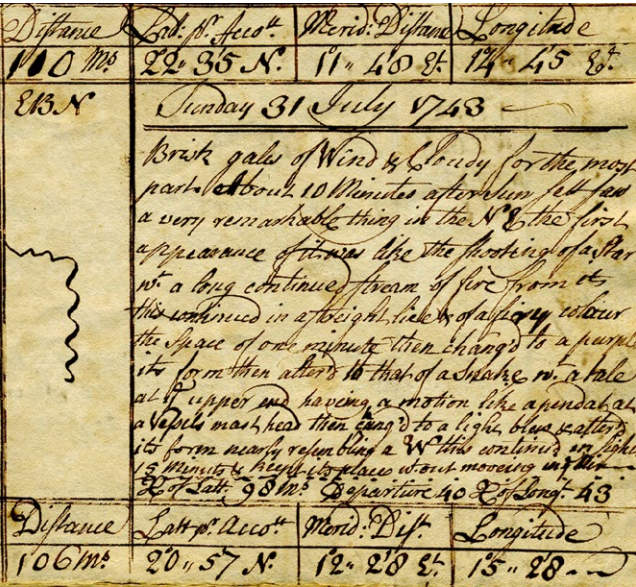 Distance Latt. pr. Acco.tt Merid: Distane Longitude
110 Ms. 22 „ 35 N. 11 „ 48 Et. 14 „ 45 Et.
EBN Sunday 31 July 1743
Brisk gales of Wind & Cloudy for the most
part About 10 Minutes after sun sett saw
a very remarkable thing in the N E the first
appearance of it was like the shooting of a Star
wt. a long continued stream of fire from its
this continued in a streight line & of a firy colour
the space of one minute then chang'd to a purple
its form then alter'd to that of a Snake wt. a tale
at ye upper end having a motion like a pendat at
a Vessels mast head then chang'd to a light blew & alter'd
its form nearly resembling a W this continued in sight
15 Minuts & keept its place without moveing
of Latt. 98 Ms Departure 40 of Longt. 43
Distance Latt pr. Acco.tt Merid: Dist. Longitude
106 Ms. 20 „ 57 N. 12 „ 28 Et. 15 „ 28